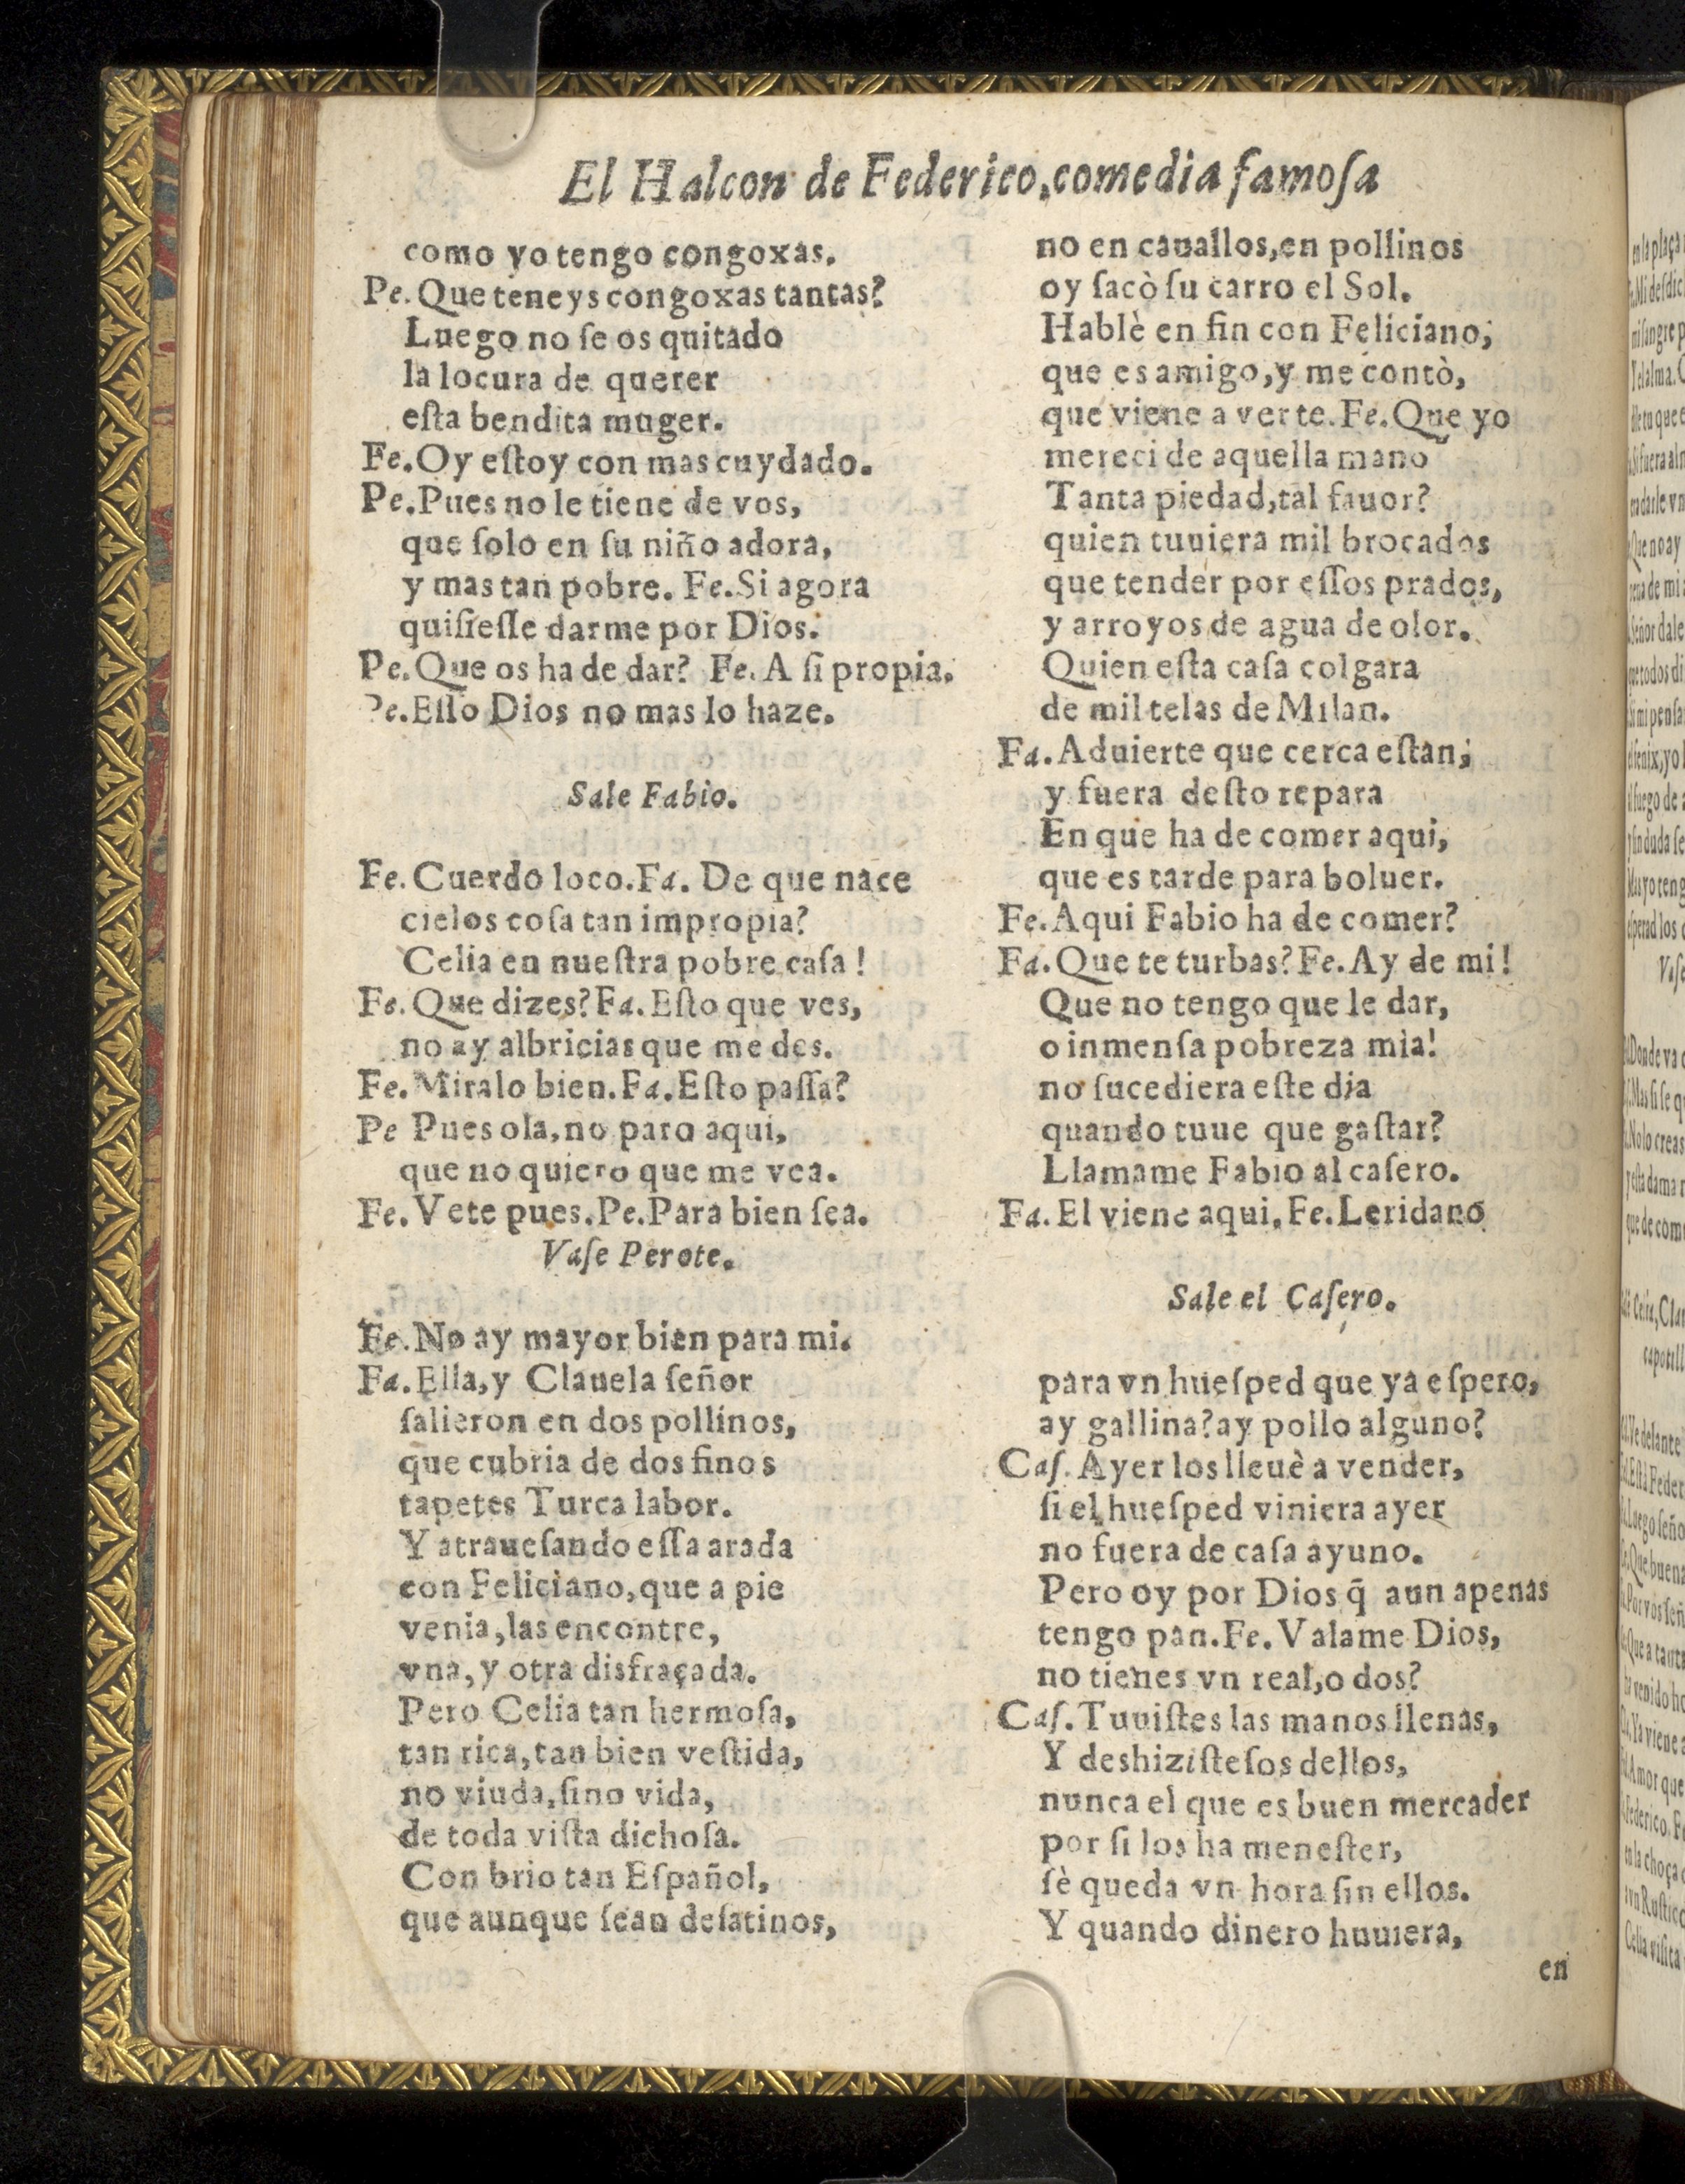 El Halcon de Federico, comedia famoſa
como yo tengo congoxas.
Pe. Que teneys congoxas tantas?
Luego no ſe os quitado
la locura de querer
eſta bendita muger.
Fe. Oy eſtoy con mas cuydado.
Pe. Pues no le tiene de vos,
que ſolo en ſu niño adora,
y mas tan pobre. Fe. Si agora
quiſieſſe darme por Dios.
Pe. Que os ha de dar? Fe. A ſi propia.
Pe. Eſſo Dios no mas lo haze.
Sale Fabio.
Fe. Cuerdo loco. Fa. De que nace
cielos coſa tan impropia?
Celia en nueſtra pobre caſa!
Fe. Que dizes? Fa. Eſto que ves,
no ay albricias que me des.
Fe. Miralo bien. Fa. Eſto paſſa?
Pe Pues ola, no paro aqui,
que no quiero que me vea.
Fe. Vete pues. Pe. Para bien ſea.
Vaſe Perote.
Fe. No ay mayor bien para mi.
Fa. Ella, y Clauela ſeñor
ſalieron en dos pollinos,
que cubria de dos finos
tapetes Turca labor.
Y atraueſando eſſa arada
con Feliciano, que a pie
venia, las encontre,
vna, y otra disfraçada.
Pero Celia tan hermoſa,
tan rica, tan bien veſtida,
no viuda, ſino vida,
de toda viſta dichoſa.
Con brio tan Eſpañol,
que aunque ſean deſatinos,
no en cauallos, en pollinos
oy ſacò ſu carro el Sol.
Hablè en fin con Feliciano,
que es amigo, y me contò,
que viene a verte. Fe. Que yo
mereci de aquella mano
Tanta piedad, tal fauor?
quien tuuiera mil brocados
que tender por eſſos prados,
y arroyos de agua de olor.
Quien eſta caſa colgara
de mil telas de Milan.
Fa. Aduierte que cerca eſtan;
y fuera deſto repara
En que ha de comer aqui,
que es tarde para boluer.
Fe. Aqui Fabio ha de comer?
Fa. Que te turbas? Fe. Ay de mi!
Que no tengo que le dar,
o inmenſa pobreza mia!
no ſucediera eſte dia
quando tuue que gaſtar?
Llamame Fabio al caſero.
Fa. El viene aqui, Fe. Leridano
Sale el Caſero.
para vn hueſped que ya eſpero,
ay gallina? ay pollo alguno?
Caſ. Ayer los lleuè a vender,
ſi el hueſped viniera ayer
no fuera de caſa ayuno.
Pero oy por Dios q̃ aun apenas
tengo pan. Fe. Valame Dios,
no tienes vn real, o dos?
Caſ. Tuuiſtes las manos llenas,
Y deshiziſteſos dellos,
nunca el que es buen mercader
por ſi los ha meneſter,
ſè queda vn hora ſin ellos.
Y quando dinero huuiera,
en